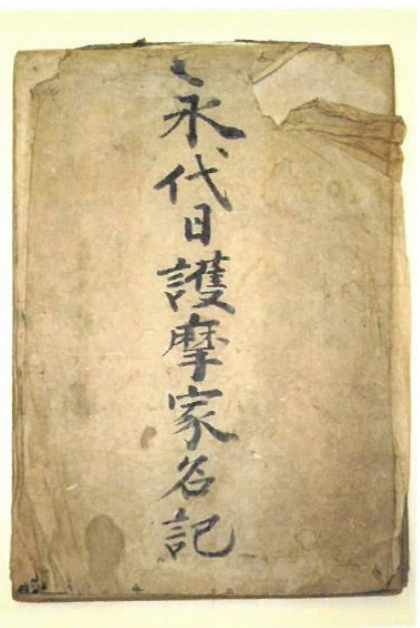 永代日護摩家名記